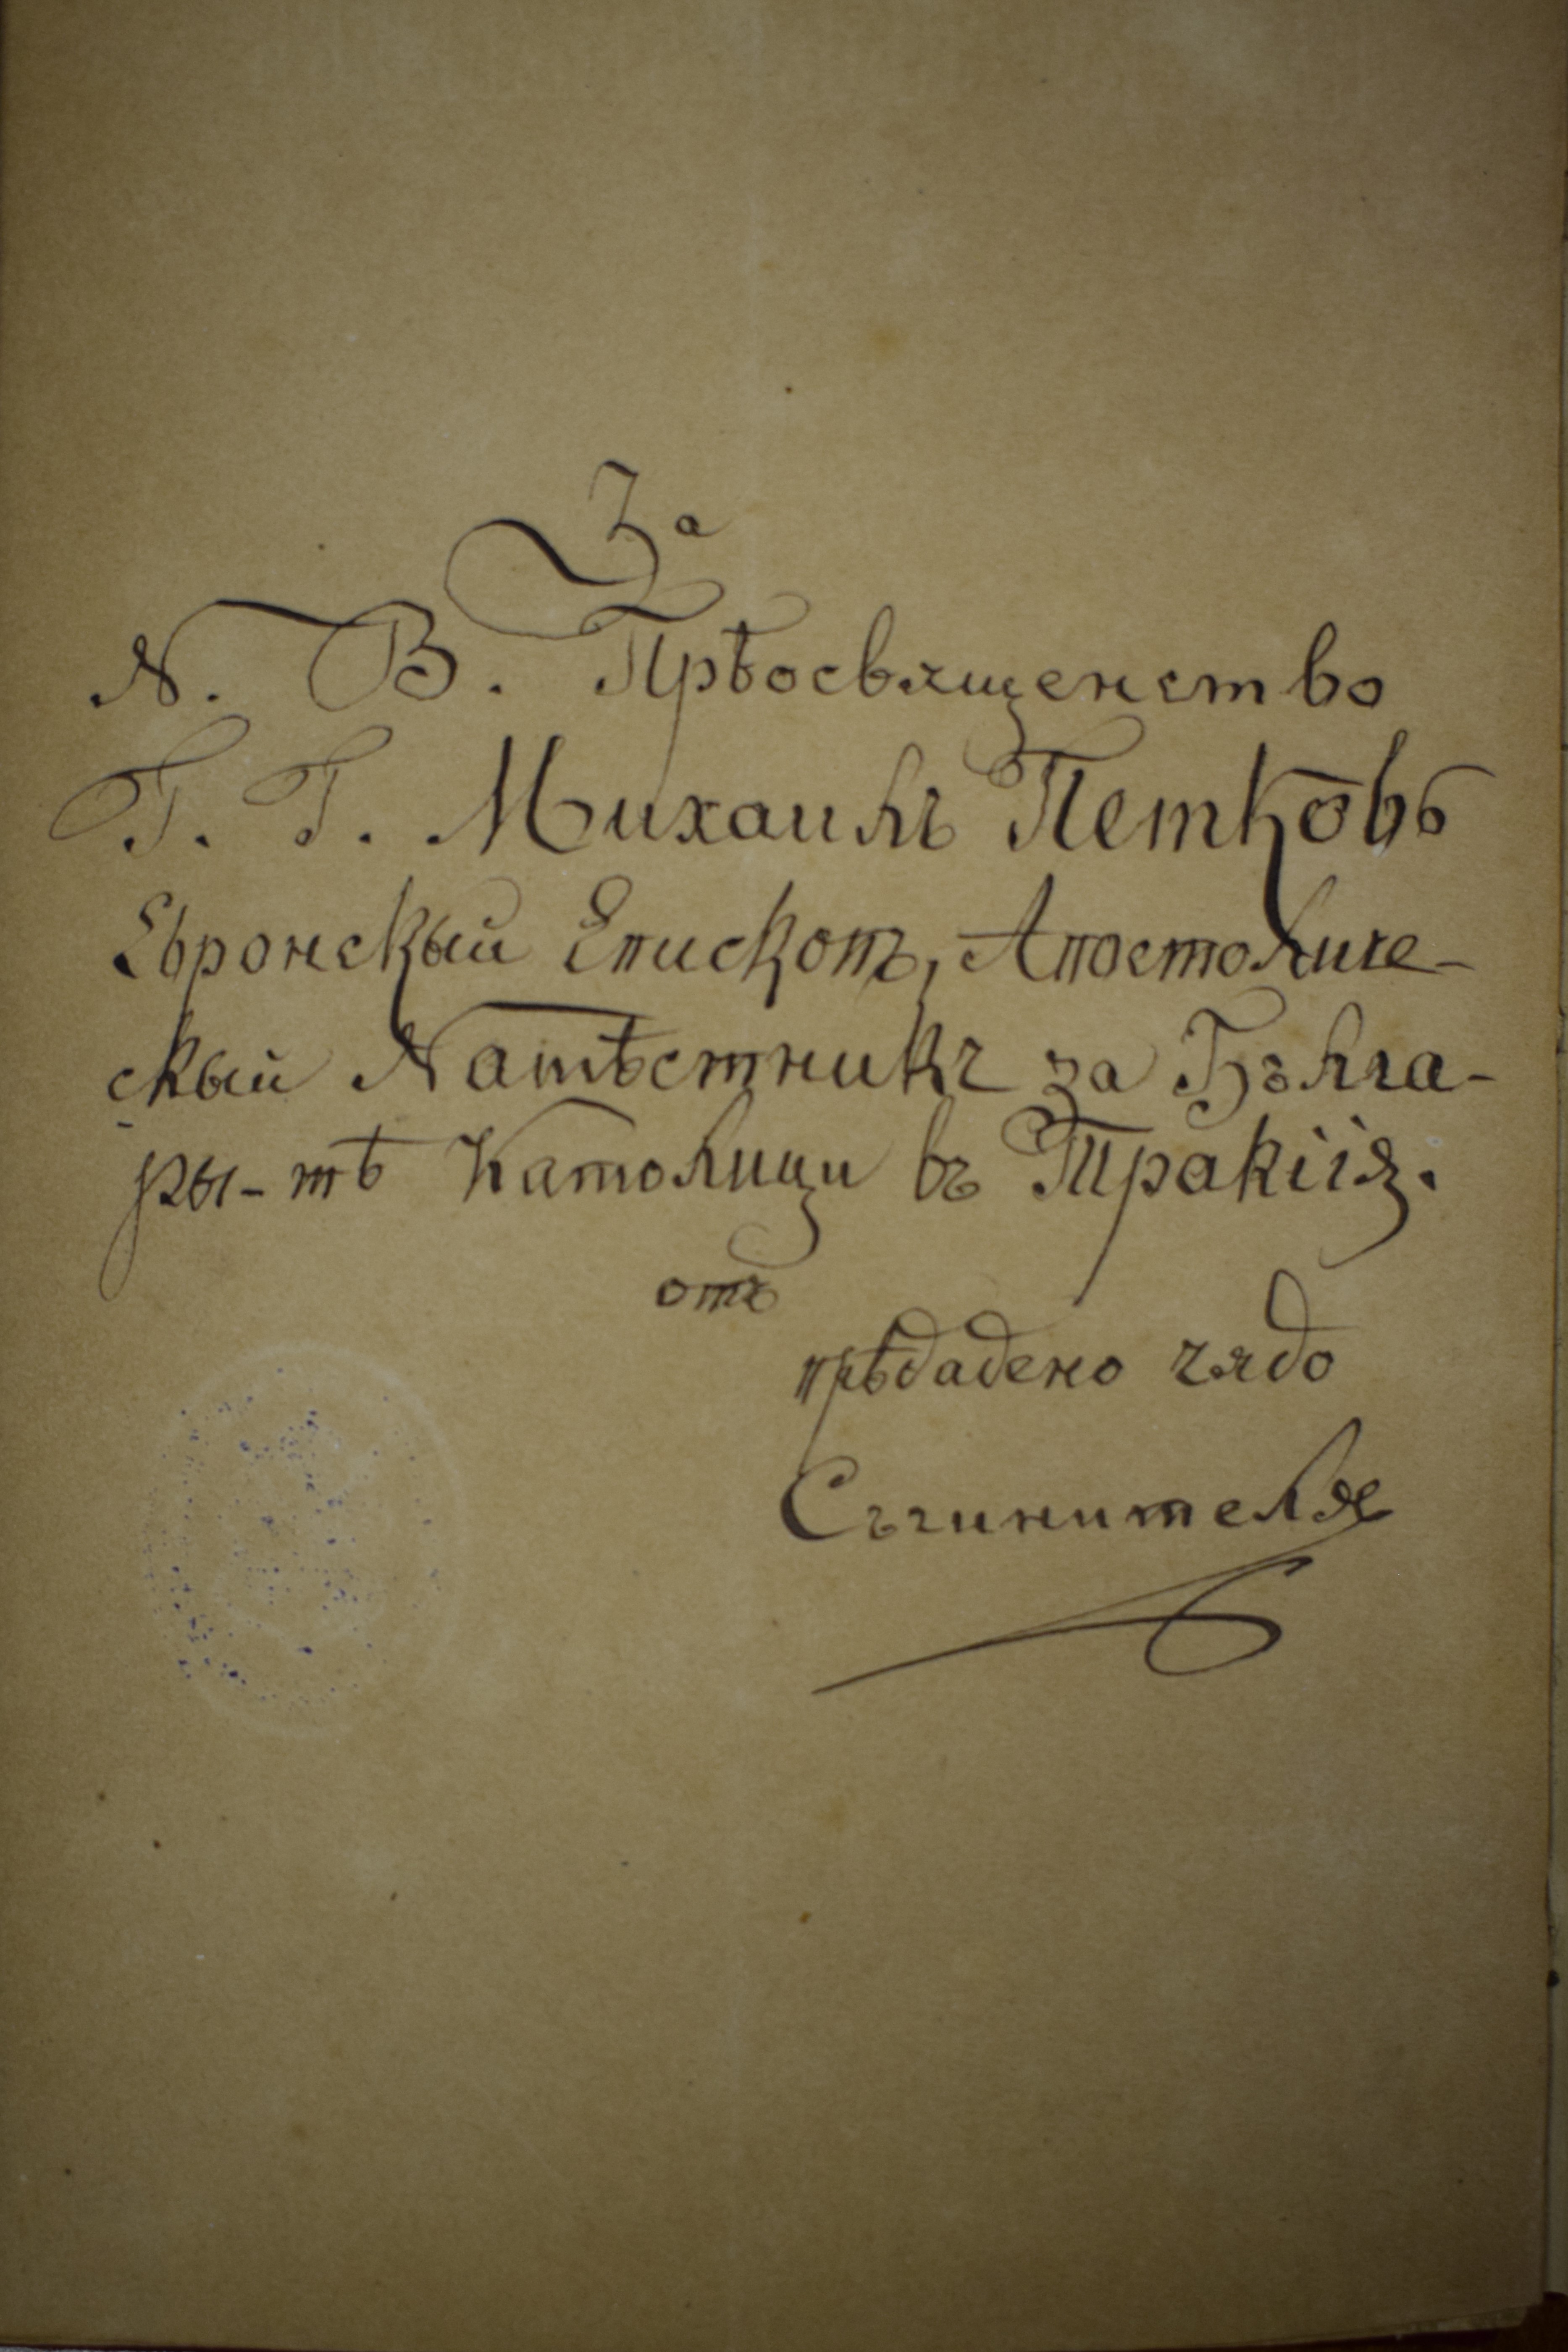 За
N. В. Прѣосвященство
Г. Г. Михаилъ Петковъ
Евронскый Епископъ, Апостоличе-
скый Намѣстникъ за Бълга-
ры-тѣ Католици въ Тракіѭ.
отъ
прѣдадено чядо
Съчинителя